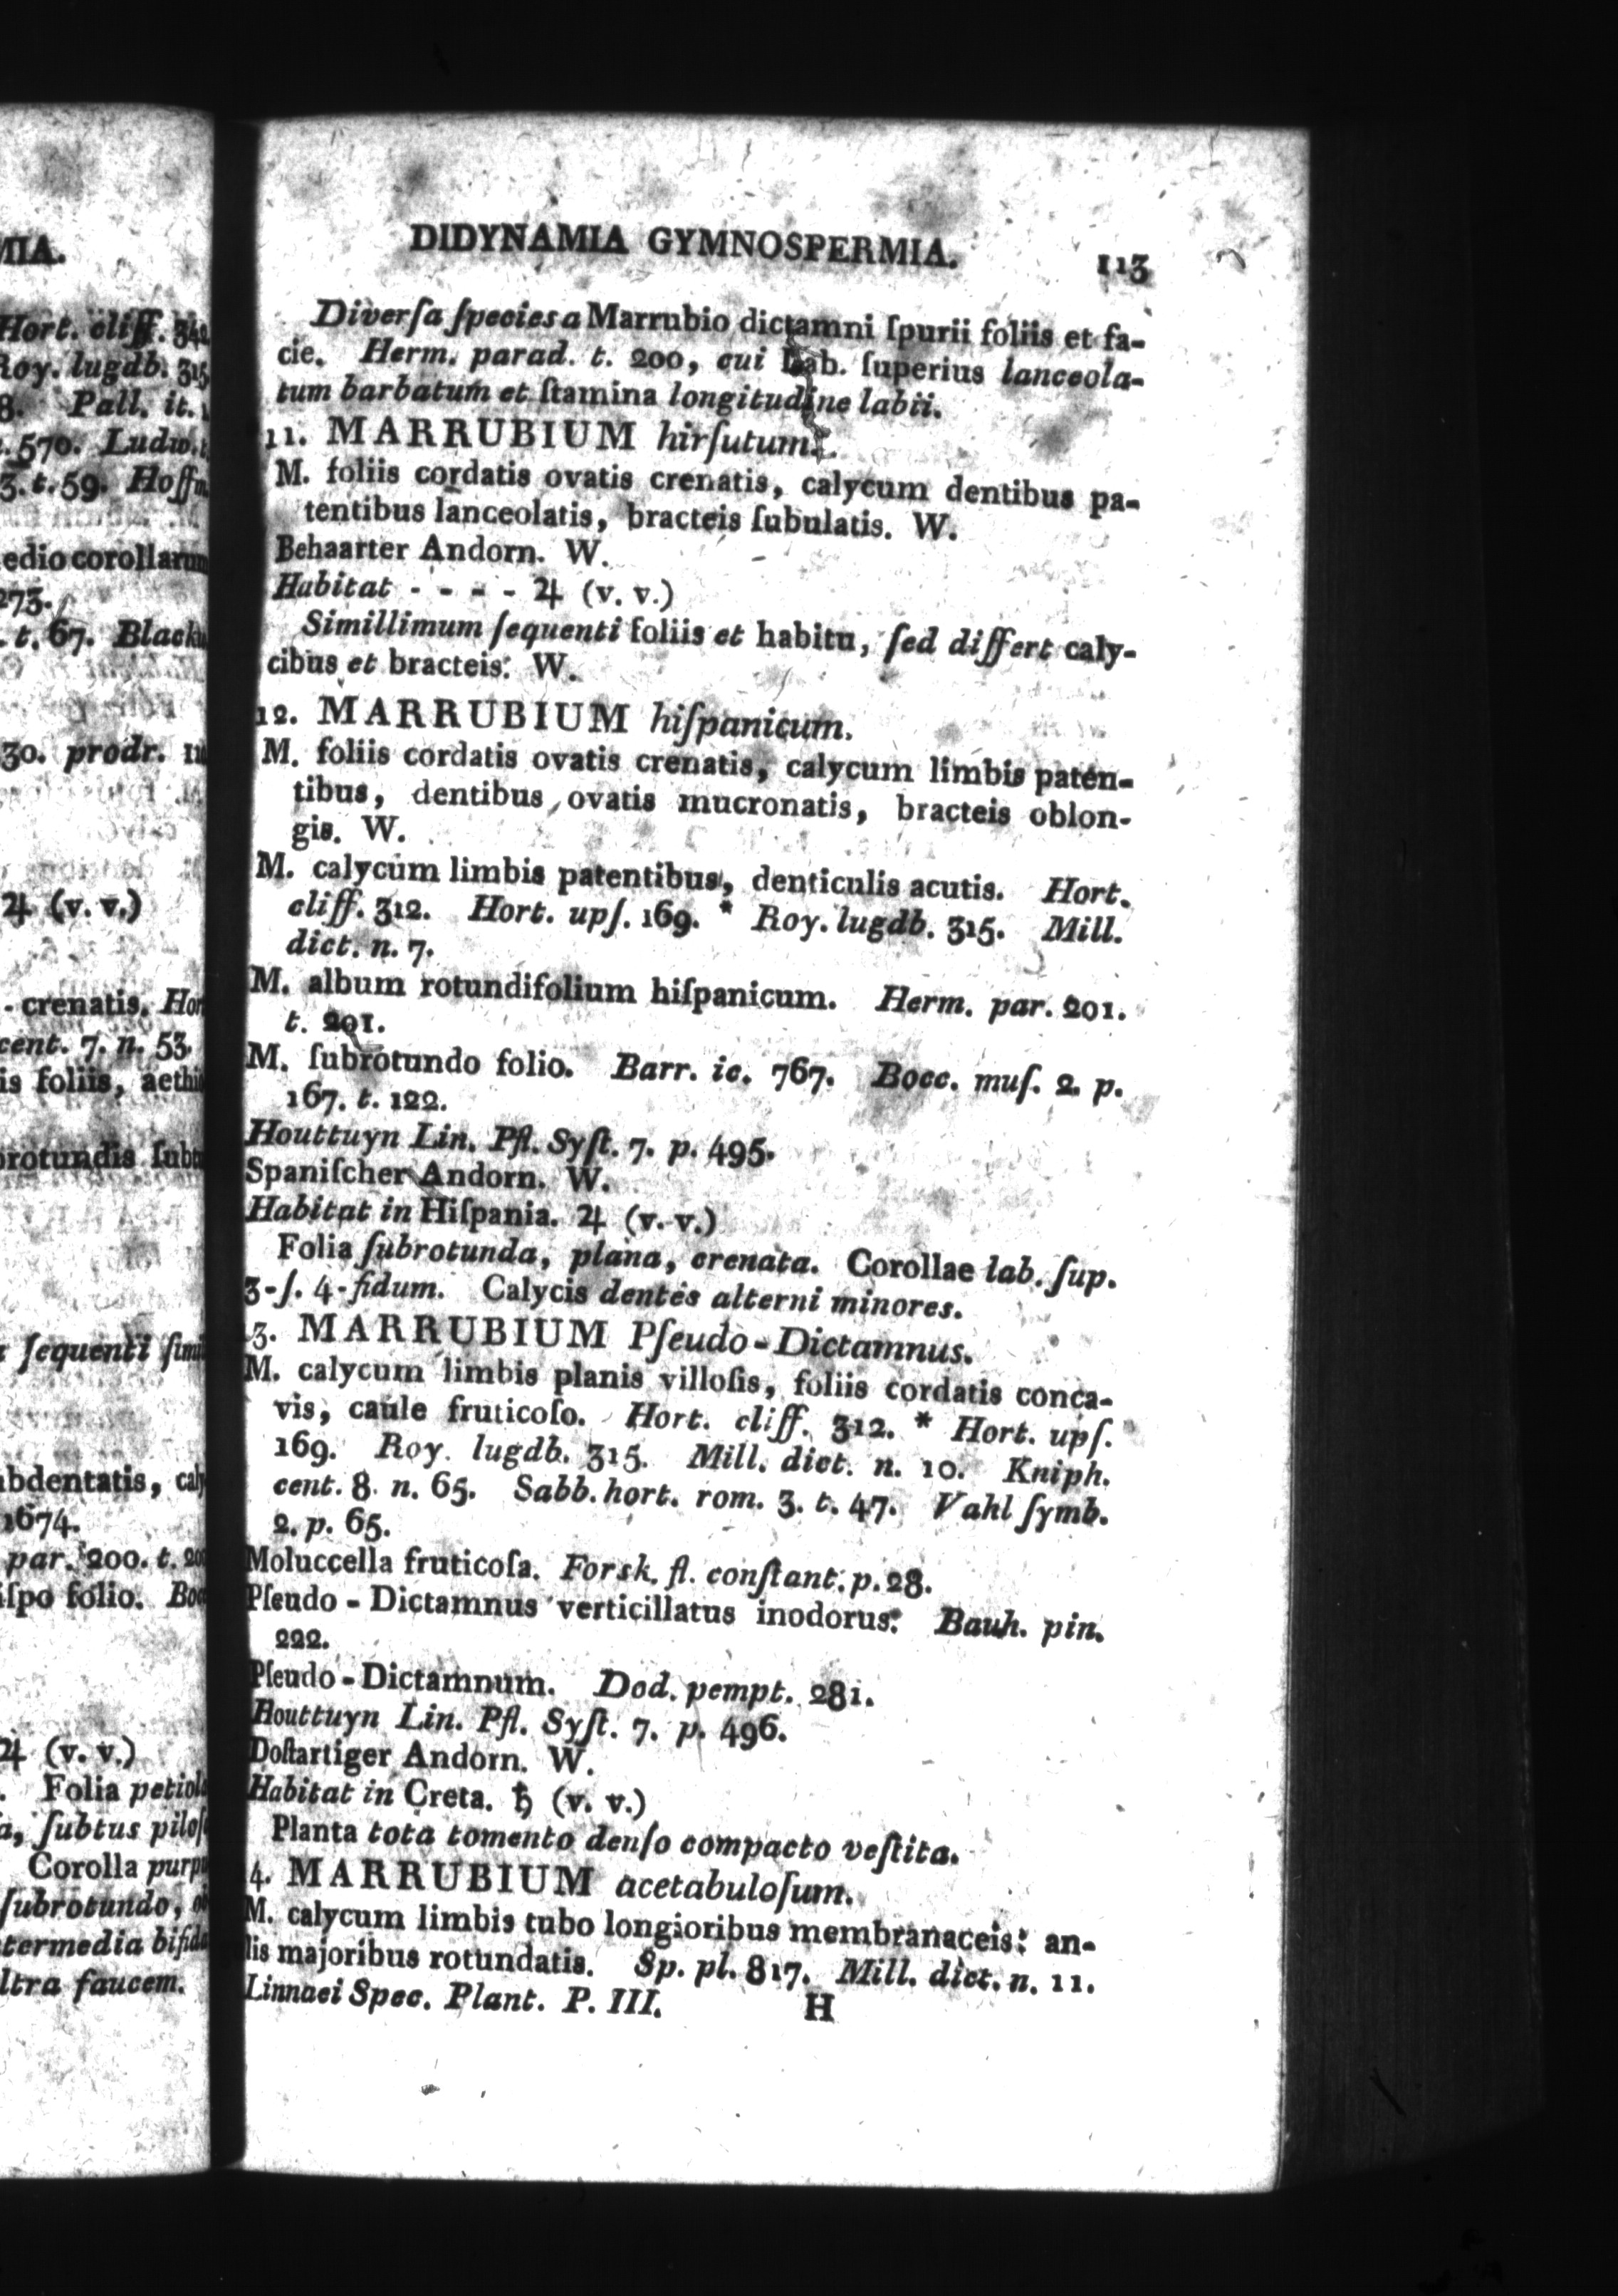 MIA.
Hort. cliff. 342.
Roy. lugdb. 315.
8. Pall. it.
570. Ludw. t.
3. t. 59. Hoffm.
edio corollarum
273.
t. 67. Blackw.
30. prodr. 111
♃ (v. v.)
- crenatis. Hort
cent. 7. n. 53.
is foliis, aethi
rotundis ſubt
ſequenti ſimi
bdentatis, caly
1674.
par. 200. t. 200
iſpo folio. Bocc
♃ (v. v.)
Folia petiola
a, ſubtus piloſ
Corolla purpu
ſubrotundo,
termedia bifida
ltra faucem.
DIDYNAMIA GYMNOSPERMIA. 113
Diverſa ſpecies a Marrubio dictamni ſpurii foliis et fa-
cie. Herm. parad. t. 200, cui Lab. ſuperius lanceola-
tum barbatum et ſtamina longitudine labii.
11. MARRUBIUM hirſutum.
M. foliis cordatis ovatis crenatis, calycum dentibus pa-
tentibus lanceolatis, bracteis ſubulatis. W.
Behaarter Andorn. W.
Habitat - - - - ♃ (v. v.)
Simillimum ſequenti foliis et habitu, ſed differt caly-
cibus et bracteis. W.
12. MARRUBIUM hiſpanicum.
M. foliis cordatis ovatis crenatis, calycum limbis paten-
tibus, dentibus ovatis mucronatis, bracteis oblon-
gis. W.
M. calycum limbis patentibus, denticulis acutis. Hort.
cliff. 312. Hort. upſ. 169. * Roy. lugdb. 315. Mill.
dict. n. 7.
M. album rotundifolium hiſpanicum. Herm. par. 201.
t. 201.
M. ſubrotundo folio. Barr. ic. 767. Bocc. muſ. 2. p.
167. t. 122.
Houttuyn Lin. Pfl. Syſt. 7. p. 495.
Spaniſcher Andorn. W.
Habitat in Hiſpania. ♃ (v. v.)
Folia ſubrotunda, plana, crenata. Corollae lab. ſup.
3-ſ. 4-fidum. Calycis dentes alterni minores.
3. MARRUBIUM Pſeudo-Dictamnus.
M. calycum limbis planis villoſis, foliis cordatis conca-
vis, caule fruticoſo. Hort. cliff. 312. * Hort. upſ.
169. Roy. lugdb. 315. Mill. dict. n. 10. Kniph.
cent. 8. n. 65. Sabb. hort. rom. 3. t. 47. Vahl ſymb.
2. p. 65.
Moluccella fruticoſa. Forsk. fl. conſtant. p. 28.
Pſeudo-Dictamnus verticillatus inodorus. Bauh. pin.
222.
Pſeudo-Dictamnum. Dod. pempt. 281.
Houttuyn Lin. Pfl. Syſt. 7. p. 496.
Doſtartiger Andorn. W.
Habitat in Creta. ♄ (v. v.)
Planta tota tomento denſo compacto veſtita.
4. MARRUBIUM acetabuloſum.
M. calycum limbis tubo longioribus membranaceis: an-
lis majoribus rotundatis. Sp. pl. 817. Mill. dict. n. 11.
Linnaei Spec. Plant. P. III. H